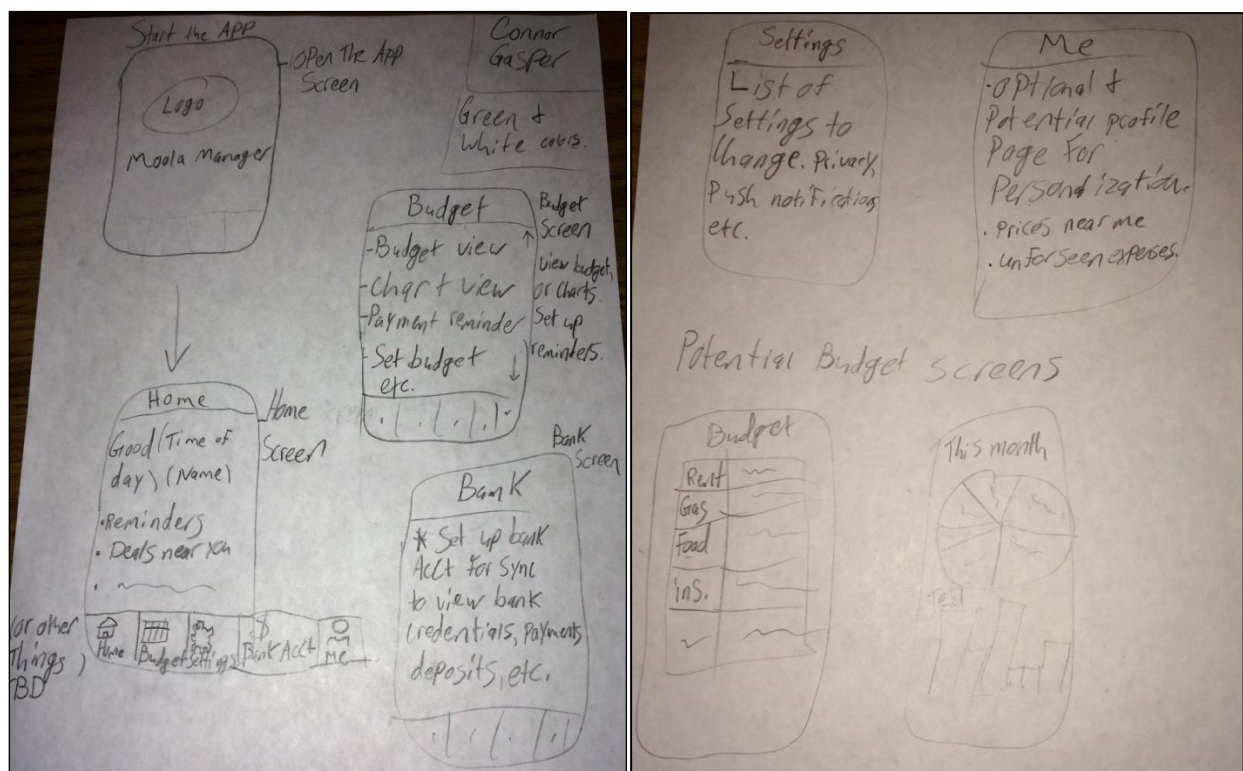 Start the APP
Open The APP
Screen
Logo
Moola Manager
Connor
Gasper
Green &
White colors.
Budget
-Budget view
-Chart view
-Payment reminder
-Set budget
etc.
Budget
Screen
view budget,
or charts.
Set up
reminders.
Home
Good (Time of
day) (Name)
•Reminders
• Deals near you
Home
Screen
(or other
Things
TBD)
Home
Budget
Settings
$
Bank Acct
Me
Bank
Screen
Bank
* Set up bank
Acct for sync
to view bank
credentials, payments
deposits, etc.
Settings
List of
Settings to
Change. Privacy,
Push notifications
etc.
Me
•Optional &
Potential profile
Page for
Personalization.
• Prices near me
• unforseen expenses.
Potential Budget screens
Budget
Rent
Gas
Food
Ins.
This month